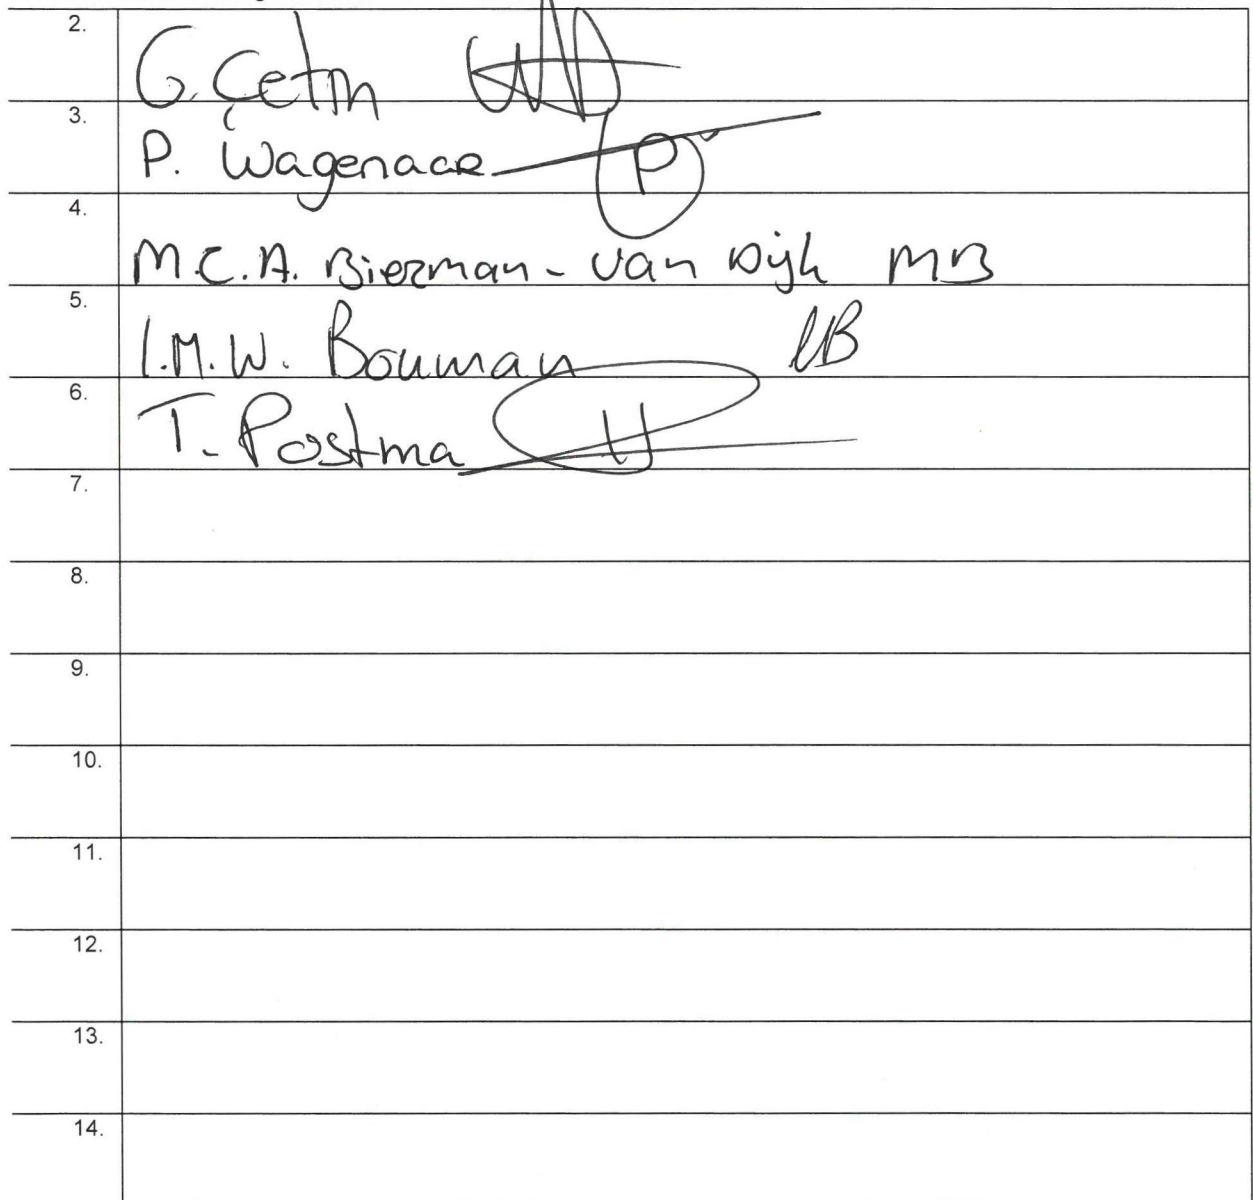 2. G. Çetin
3. P. Wagenaar P
4. M.C.A. Bierman - van Dijk MB
5. I.M.W. Bouman IB
6. T. Postma
7.
8.
9.
10.
11.
12.
13.
14.